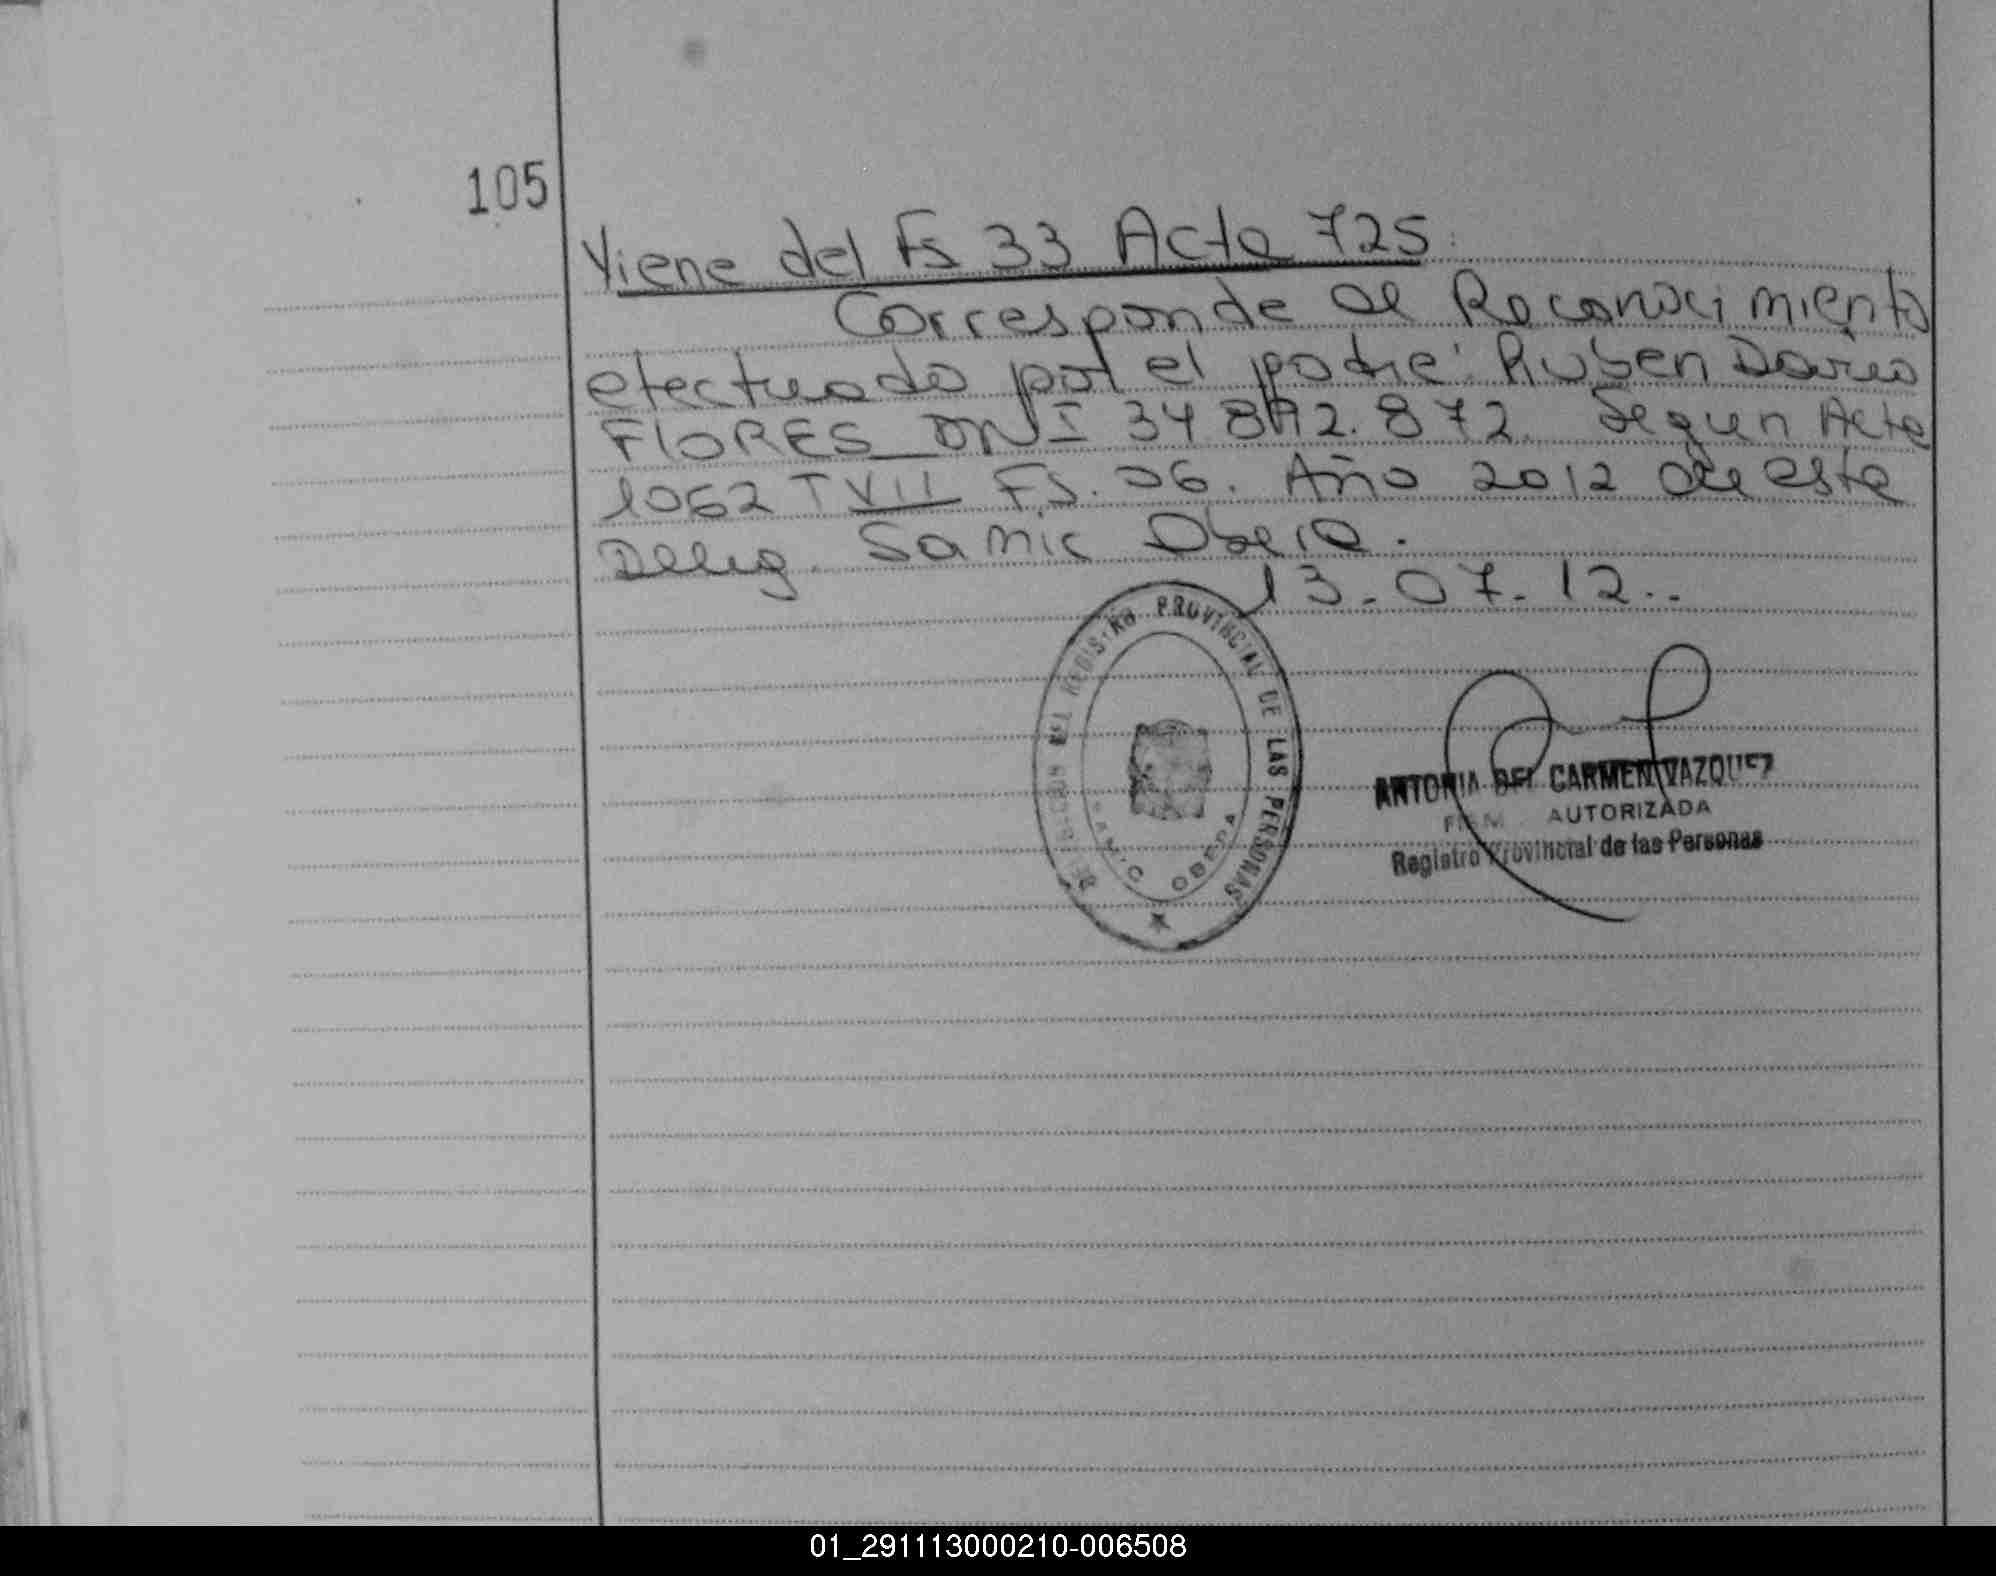 105
Viene del Fs 33 Acta 725.
Corresponde al Reconocimiento
efectuado por el padre: Ruben Dario
FLORES DNI 34.892.872. Segun Acta
1062 T VII Fs. 06. Año 2012 de esta
Deleg. Samic Obera.
13.07.12..
DEL REGISTRO PROVINCIAL DE LAS PERSONAS
SAMIC OBERA
ANTONIA DEL CARMEN VAZQUEZ
AUTORIZADA
Registro Provincial de las Personas
01_291113000210-006508